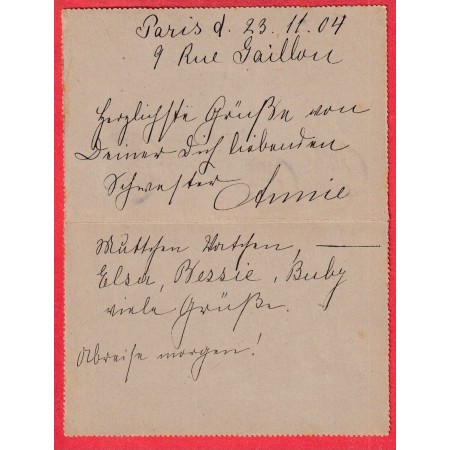 Paris d. 23. 11. 04
9 Rue Gaillon
Herzlichste Grüße von
Deiner Dich liebenden
Schwester Annie
Muttchen Vatchen,
Elsa, Bessie, Buby
viele Grüße.
Abreise morgen!